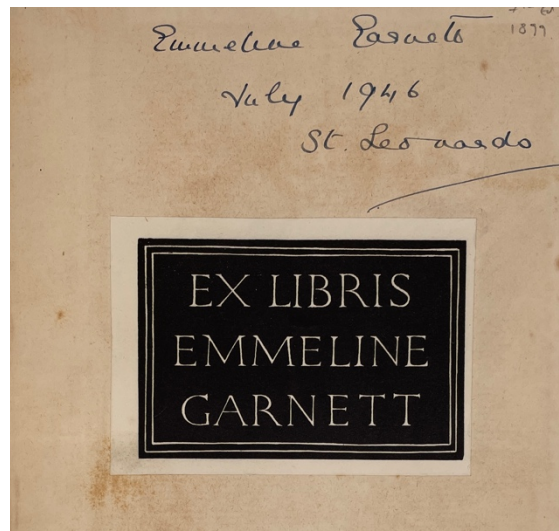 Emmeline Garnett
1899
July 1946
St. Leonards
EX LIBRIS
EMMELINE
GARNETT